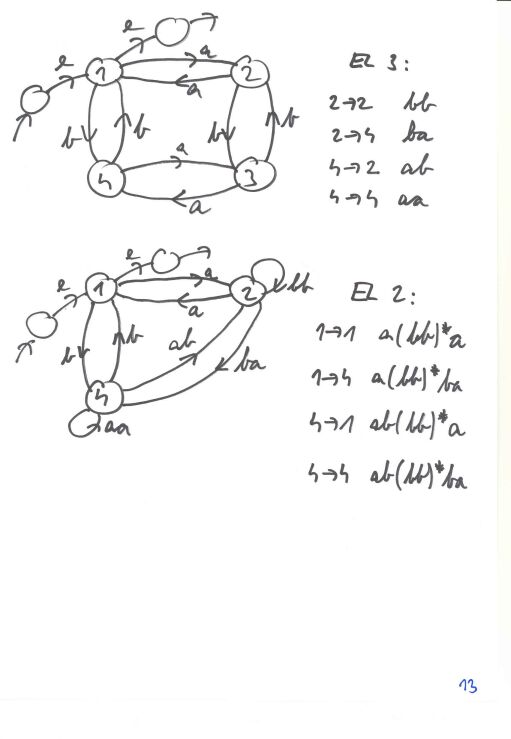 e
e
a
1
2
a
b
b
b
b
a
4
3
a
EL 3:
2→2 bb
2→4 ba
4→2 ab
4→4 aa
e
e
a
1
2
bb
a
b
b
ab
ba
4
aa
EL 2:
1→1 a(bb)*a
1→4 a(bb)*ba
4→1 ab(bb)*a
4→4 ab(bb)*ba
13